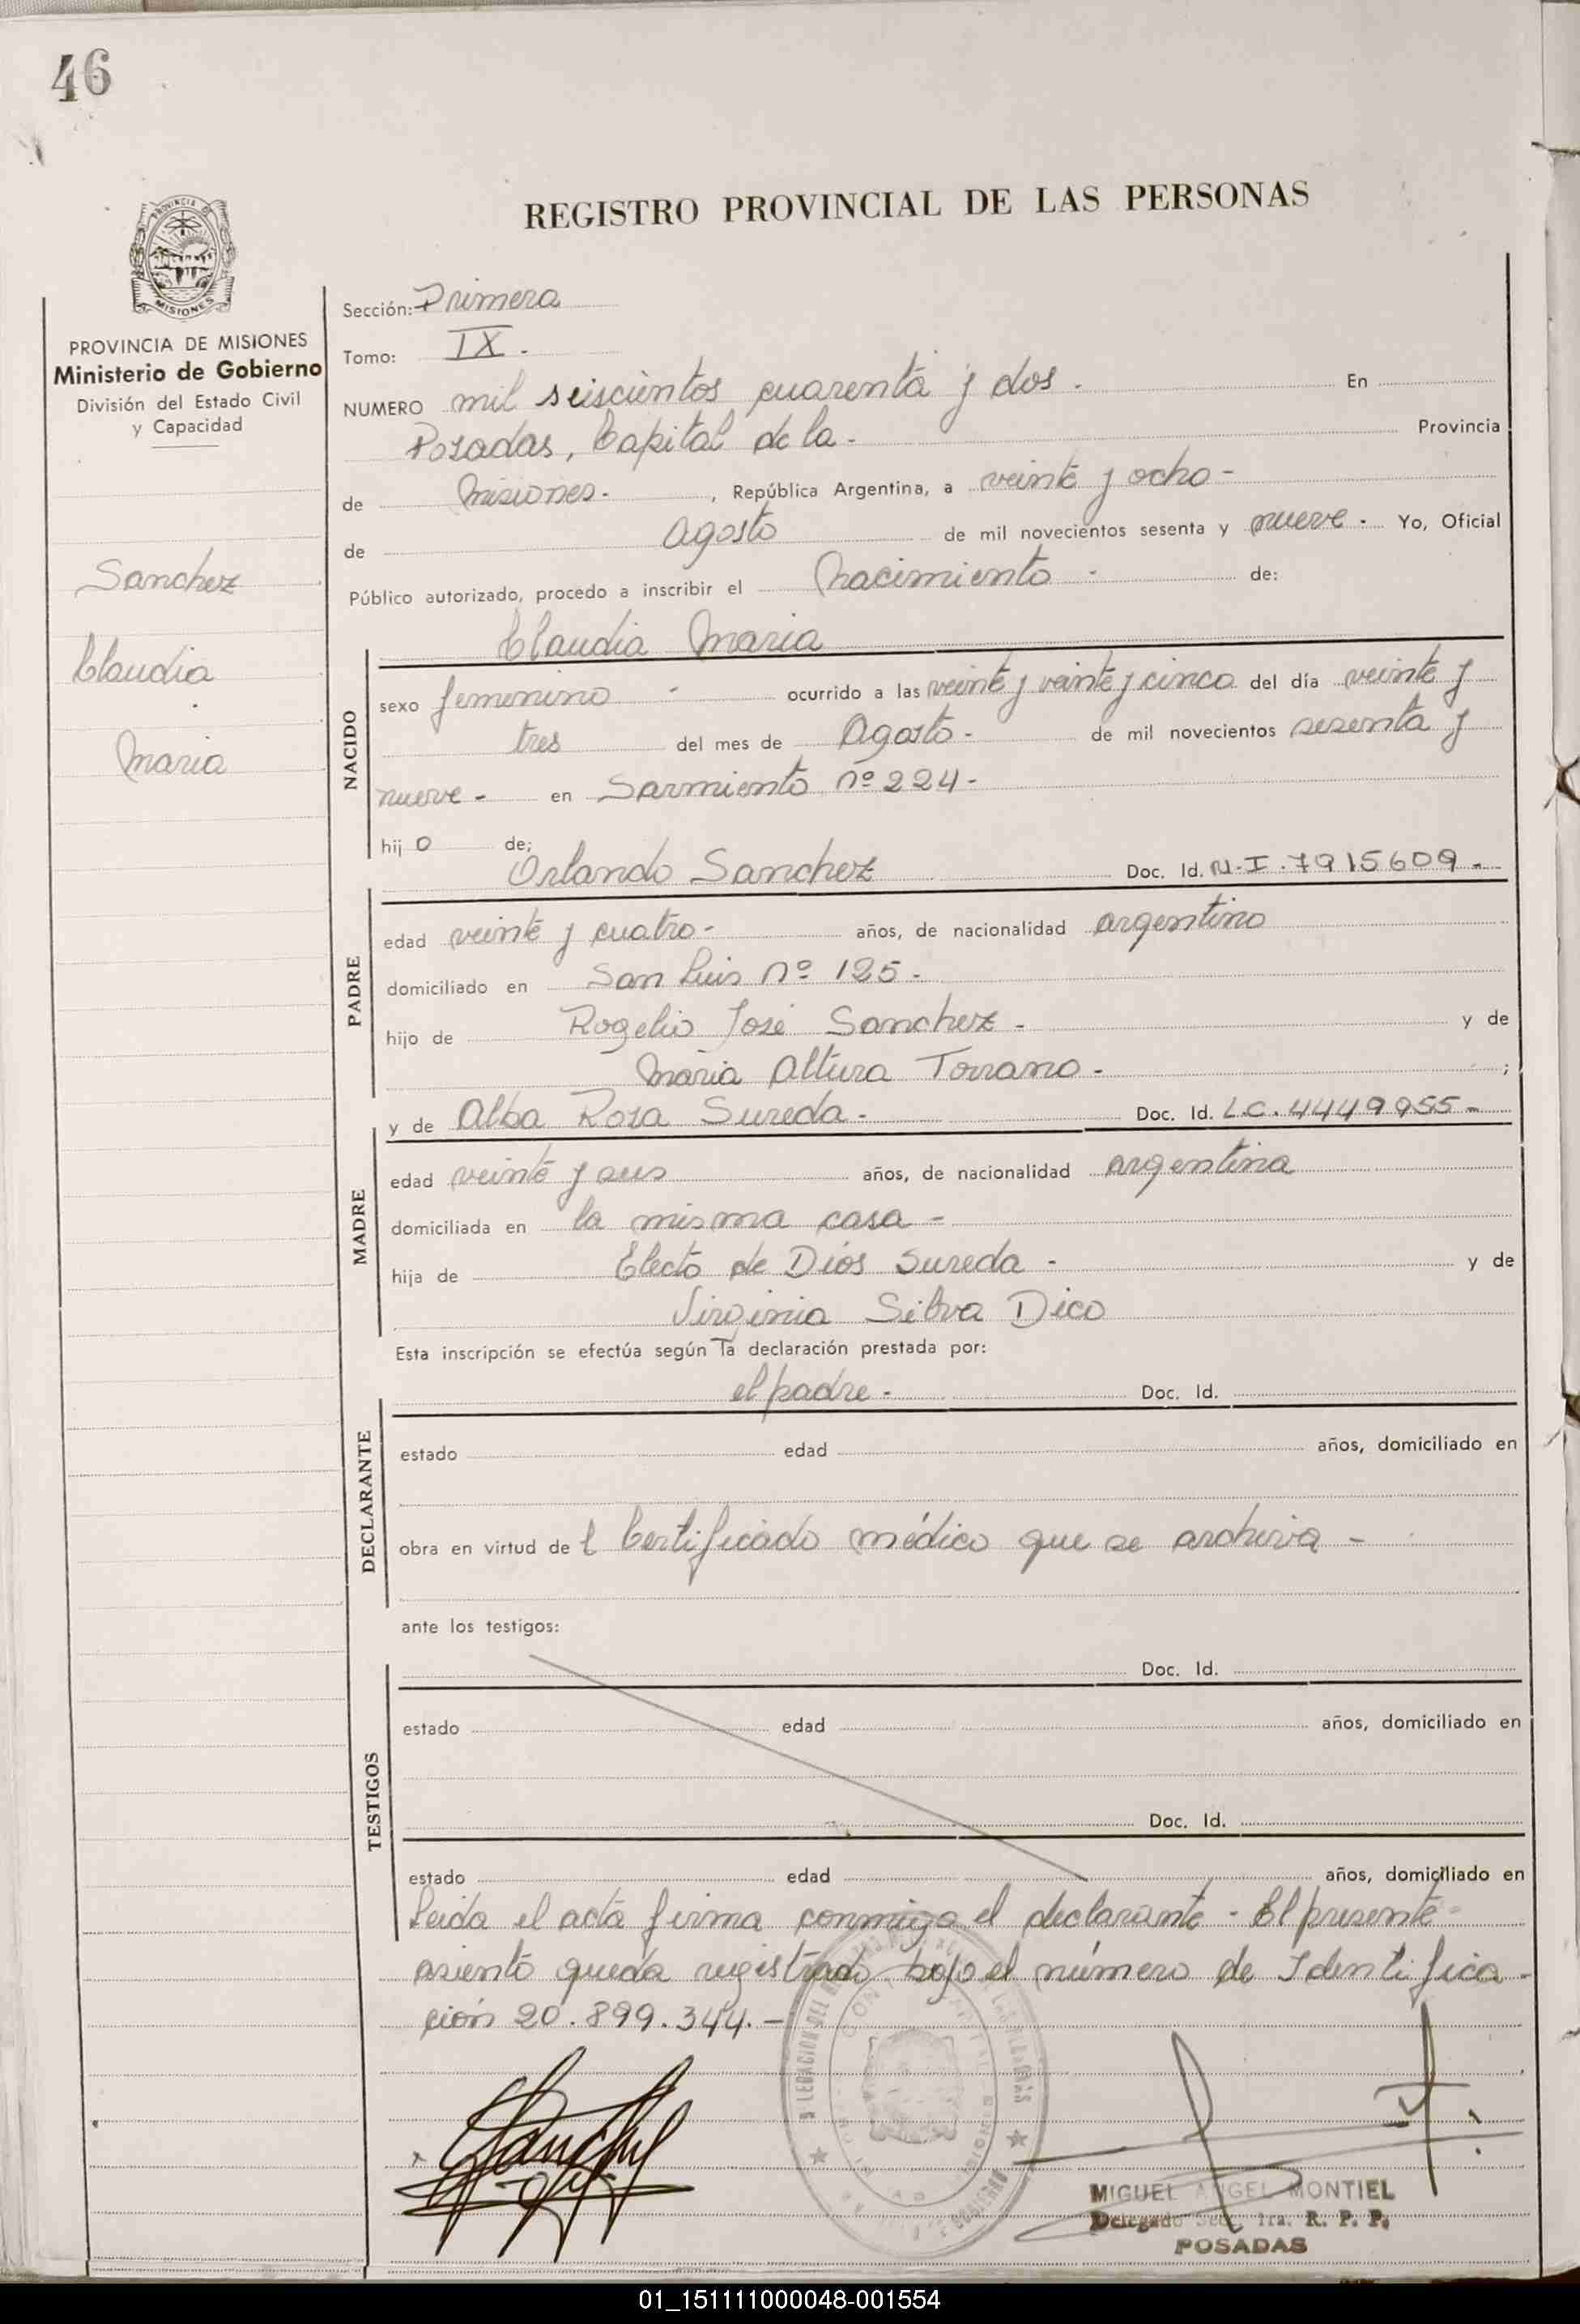 46
REGISTRO PROVINCIAL DE LAS PERSONAS
PROVINCIA MISIONES
PROVINCIA DE MISIONES
Ministerio de Gobierno
División del Estado Civil
y Capacidad
Sanchez
Claudia
Maria
Sección: Primera
Tomo: IX.
NUMERO mil seiscientos cuarenta y dos. En
Posadas, Capital de la - Provincia
de Misiones. , República Argentina, a veinte y ocho -
de Agosto de mil novecientos sesenta y nueve. Yo, Oficial
Público autorizado, procedo a inscribir el Nacimiento - de:
Claudia Maria
NACIDO
sexo femenino - ocurrido a las veinte y veinte y cinco del día veinte y
tres del mes de Agosto - de mil novecientos sesenta y
nueve - en Sarmiento nº 224 -
hij o de;
Orlando Sanchez Doc. Id. N.I. 7915609 -
PADRE
edad veinte y cuatro - años, de nacionalidad argentino
domiciliado en San Luis nº 125 -
hijo de Rogelio José Sanchez - y de
Maria Altura Torrano - ;
y de Alba Rosa Sureda - Doc. Id. L.C. 4449955 -
MADRE
edad veinte y seis años, de nacionalidad argentina
domiciliada en la misma casa -
hija de Electo de Dios Sureda - y de
Virginia Silva Dico
Esta inscripción se efectúa según la declaración prestada por:
el padre - Doc. Id.
DECLARANTE
estado edad años, domiciliado en
obra en virtud de l Certificado médico que se archiva -
ante los testigos:
TESTIGOS
Doc. Id.
estado edad años, domiciliado en
Doc. Id.
estado edad años, domiciliado en
Leida el acta firma conmigo el declarante - El presente
asiento queda registrado bajo el número de Identifica-
ción 20.899.344. -
MIGUEL ANGEL MONTIEL
Delegado Secc. 1ra. R. P. P.
POSADAS
01_151111000048-001554